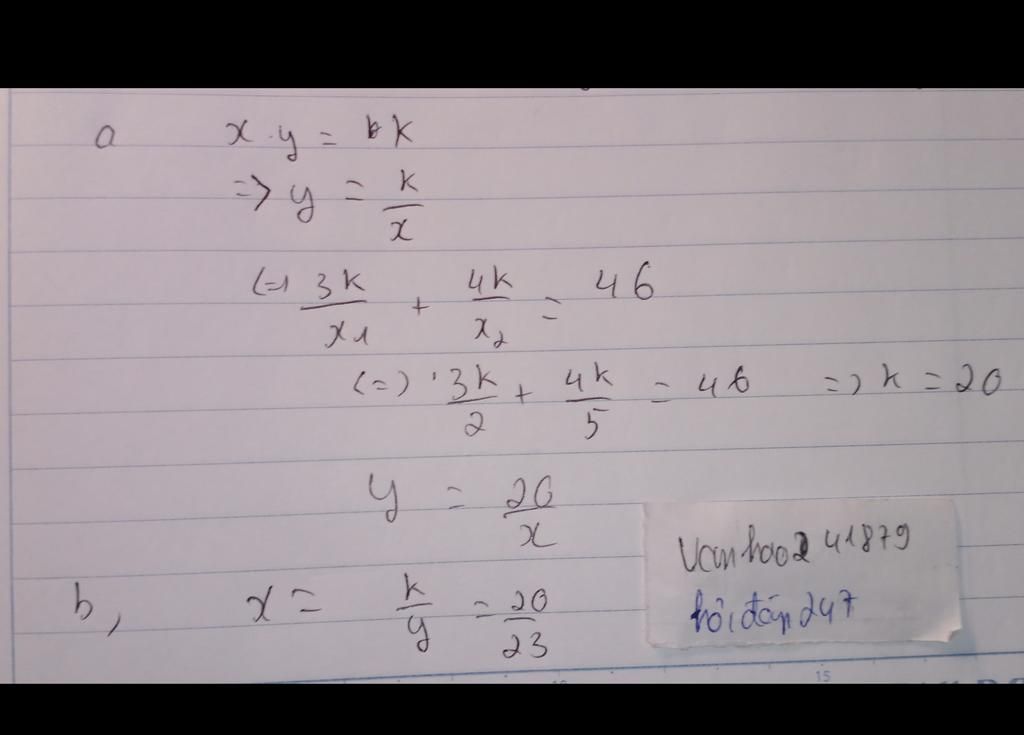 a x.y = k
=> y = k/x
(=) 3k/x1 + 4k/x2 = 46
(=) 3k/2 + 4k/5 = 46 => k = 20
y = 20/x
b, x = k/y = 20/23
Vanhao241879
hỏi đáp 247
15